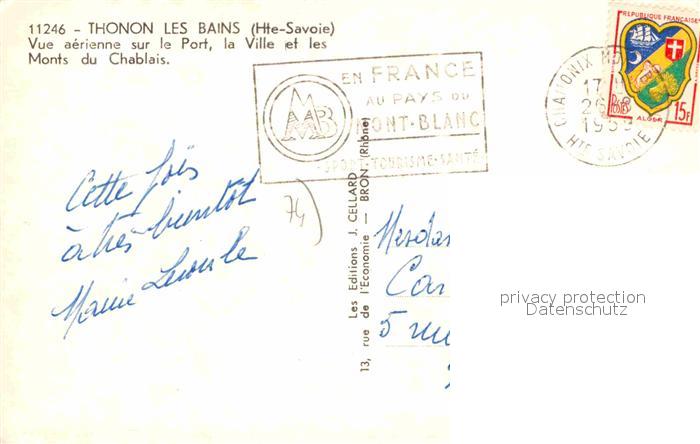 11246 - THONON LES BAINS (Hte-Savoie)
Vue aérienne sur le Port, la Ville et les
Monts du Chablais.
EN FRANCE
AU PAYS DU
MONT-BLANC
SPORT-TOURISME-SANTÉ
AMB
REPUBLIQUE FRANÇAISE
ALGER
15F
CHAMONIX MO
17
26
195
HTE SAVOIE
Cette fois
à très bientôt
Marie
74
Les Editions J. CELLARD
13, rue de l'Economie — BRON (Rhône)
Mesda
Car
5 rue
privacy protection
Datenschutz